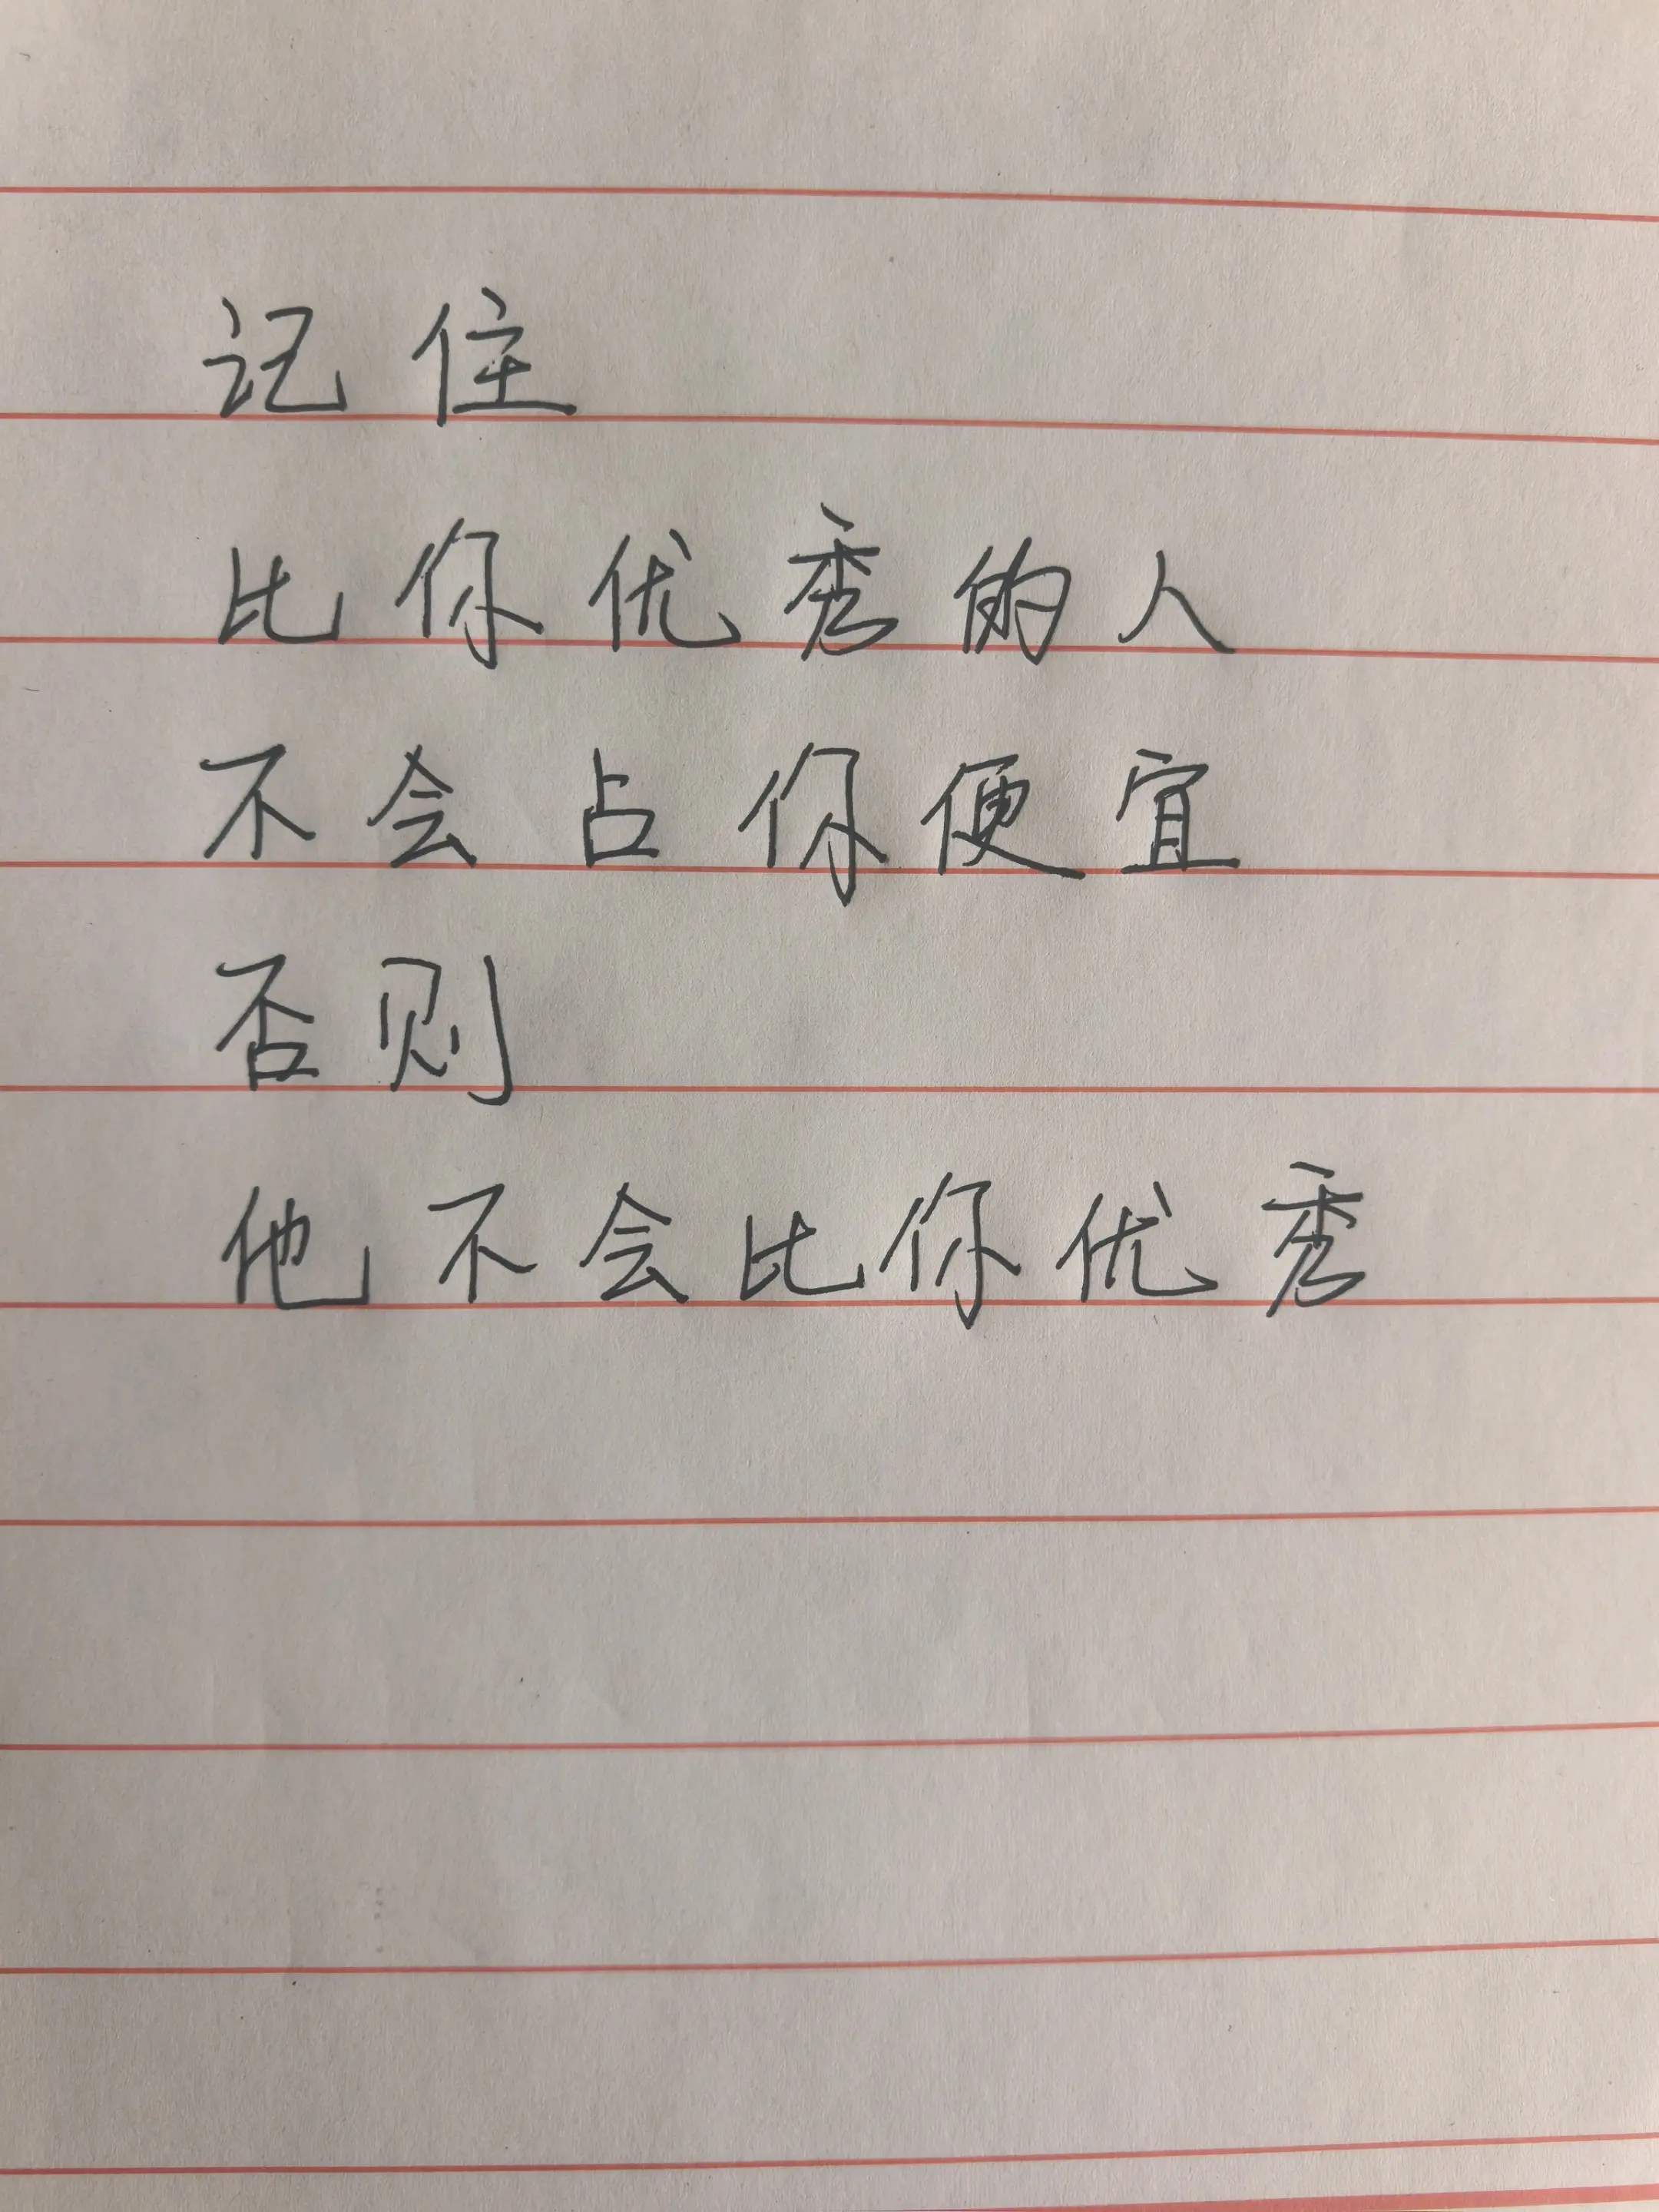 记住
比你优秀的人
不会占你便宜
否则
他不会比你优秀